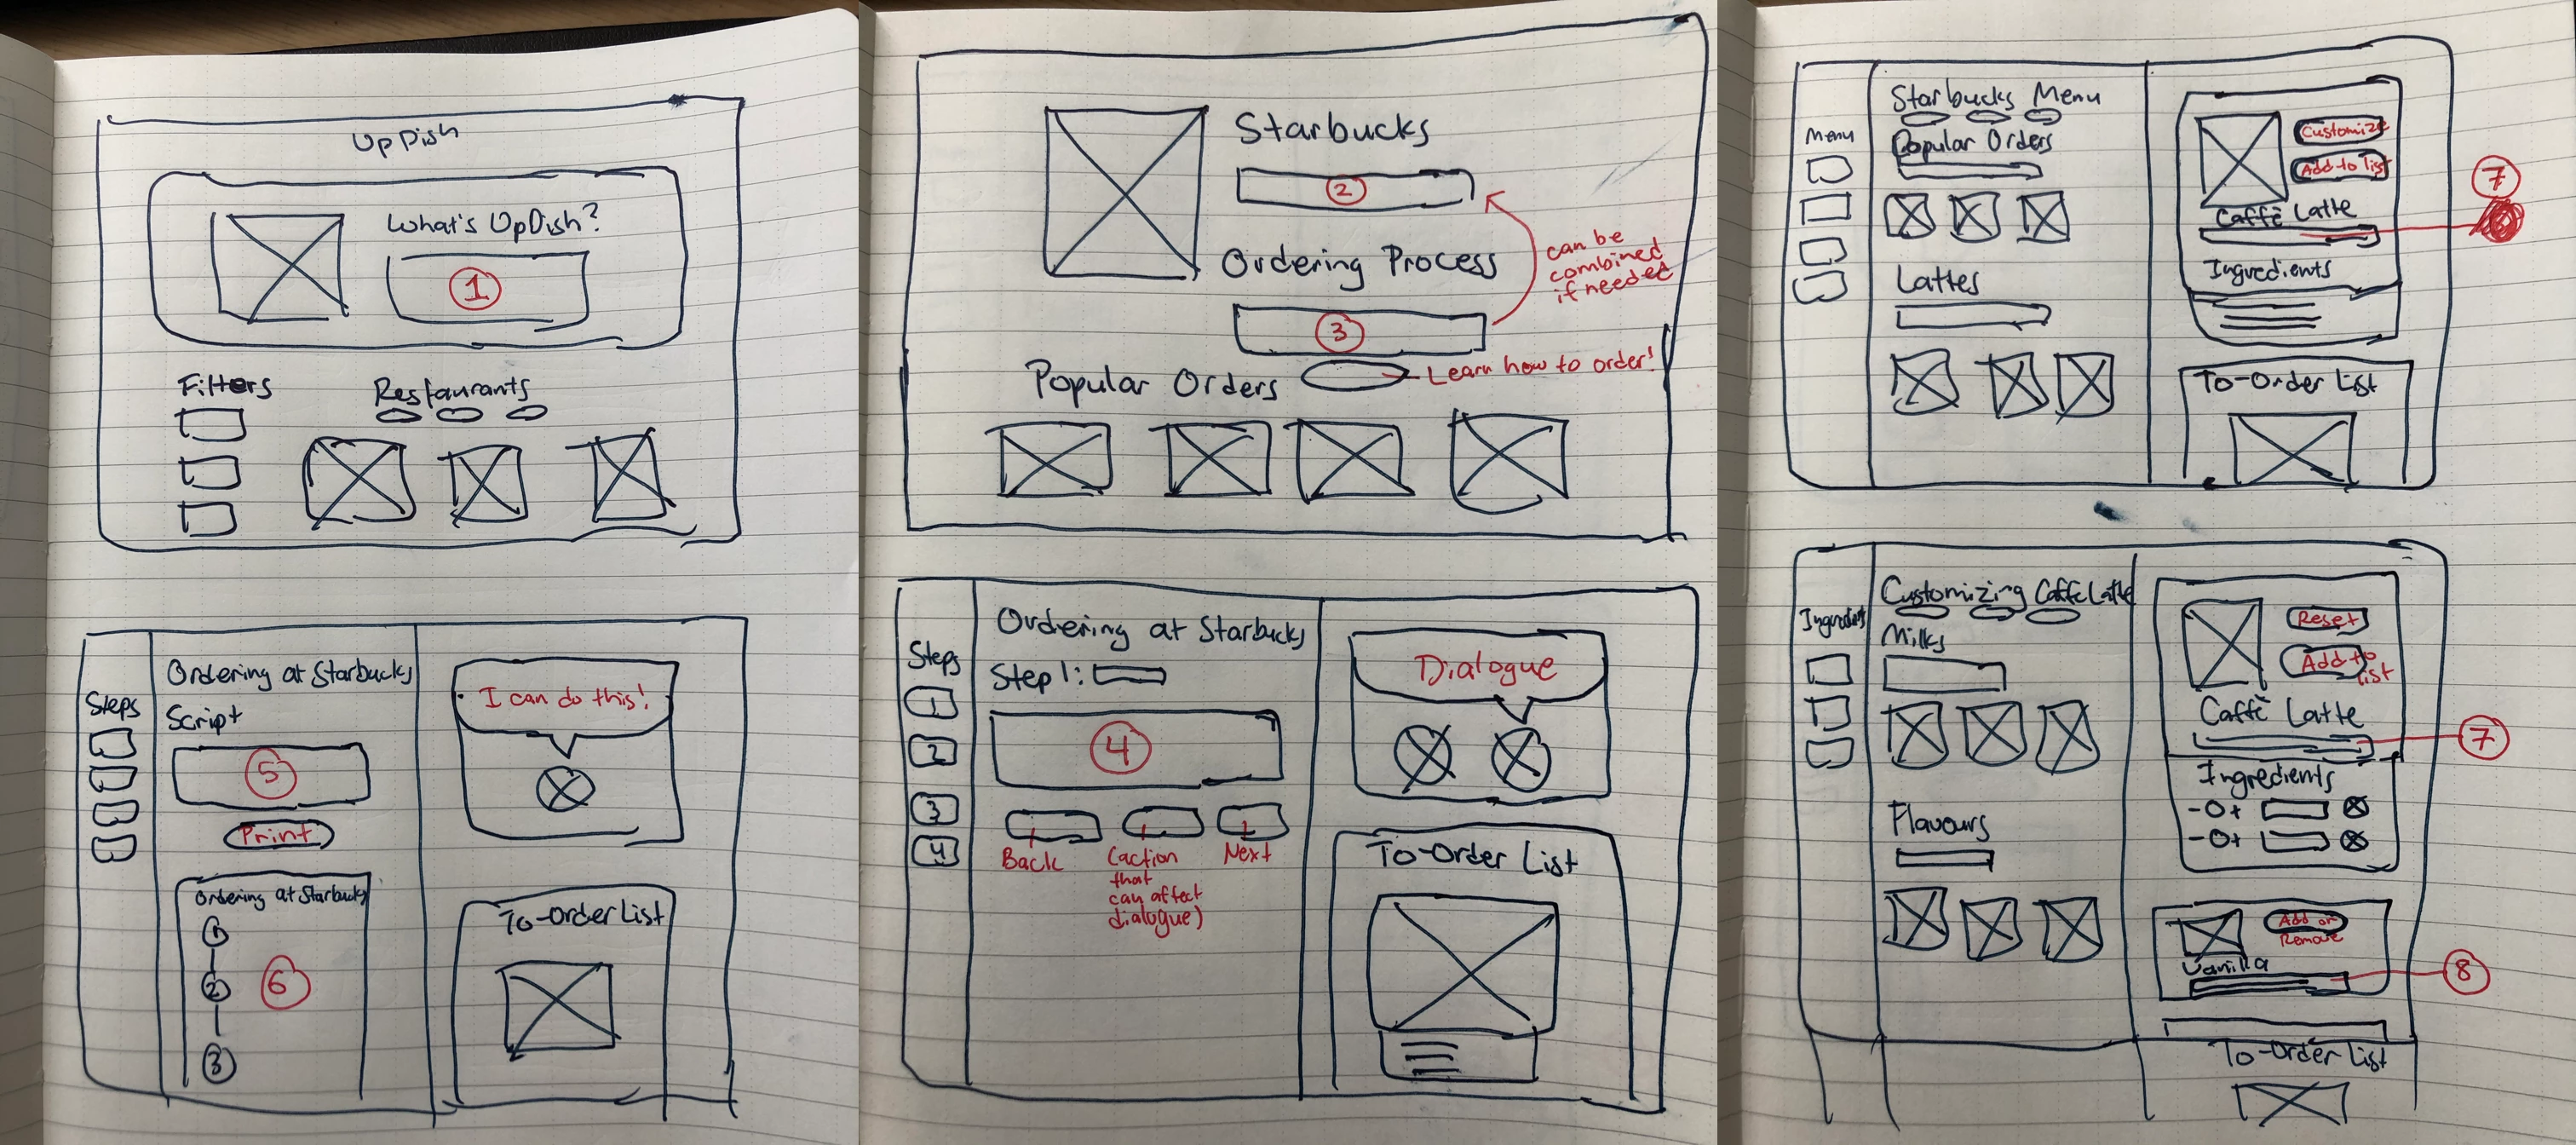 UpDish
What's UpDish?
1
Filters
Restaurants
Steps
Ordering at Starbucks
Script
5
Print
Ordering at Starbucks
1
2
3
6
I can do this!
To-Order List
Starbucks
2
Ordering Process
3
can be
combined
if needed
Learn how to order!
Popular Orders
Steps
1
2
3
4
Ordering at Starbucks
Step 1:
4
Back
(action
that
can affect
dialogue)
Next
Dialogue
To-Order List
Menu
Starbucks Menu
Popular Orders
Lattes
Customize
Add to list
Caffè Latte
7
Ingredients
To-Order List
Ingredients
Customizing Caffè Latte
Milks
Flavours
Reset
Add to
list
Caffè Latte
7
Ingredients
-0+
-0+
Add or
Remove
Vanilla
8
To-Order List